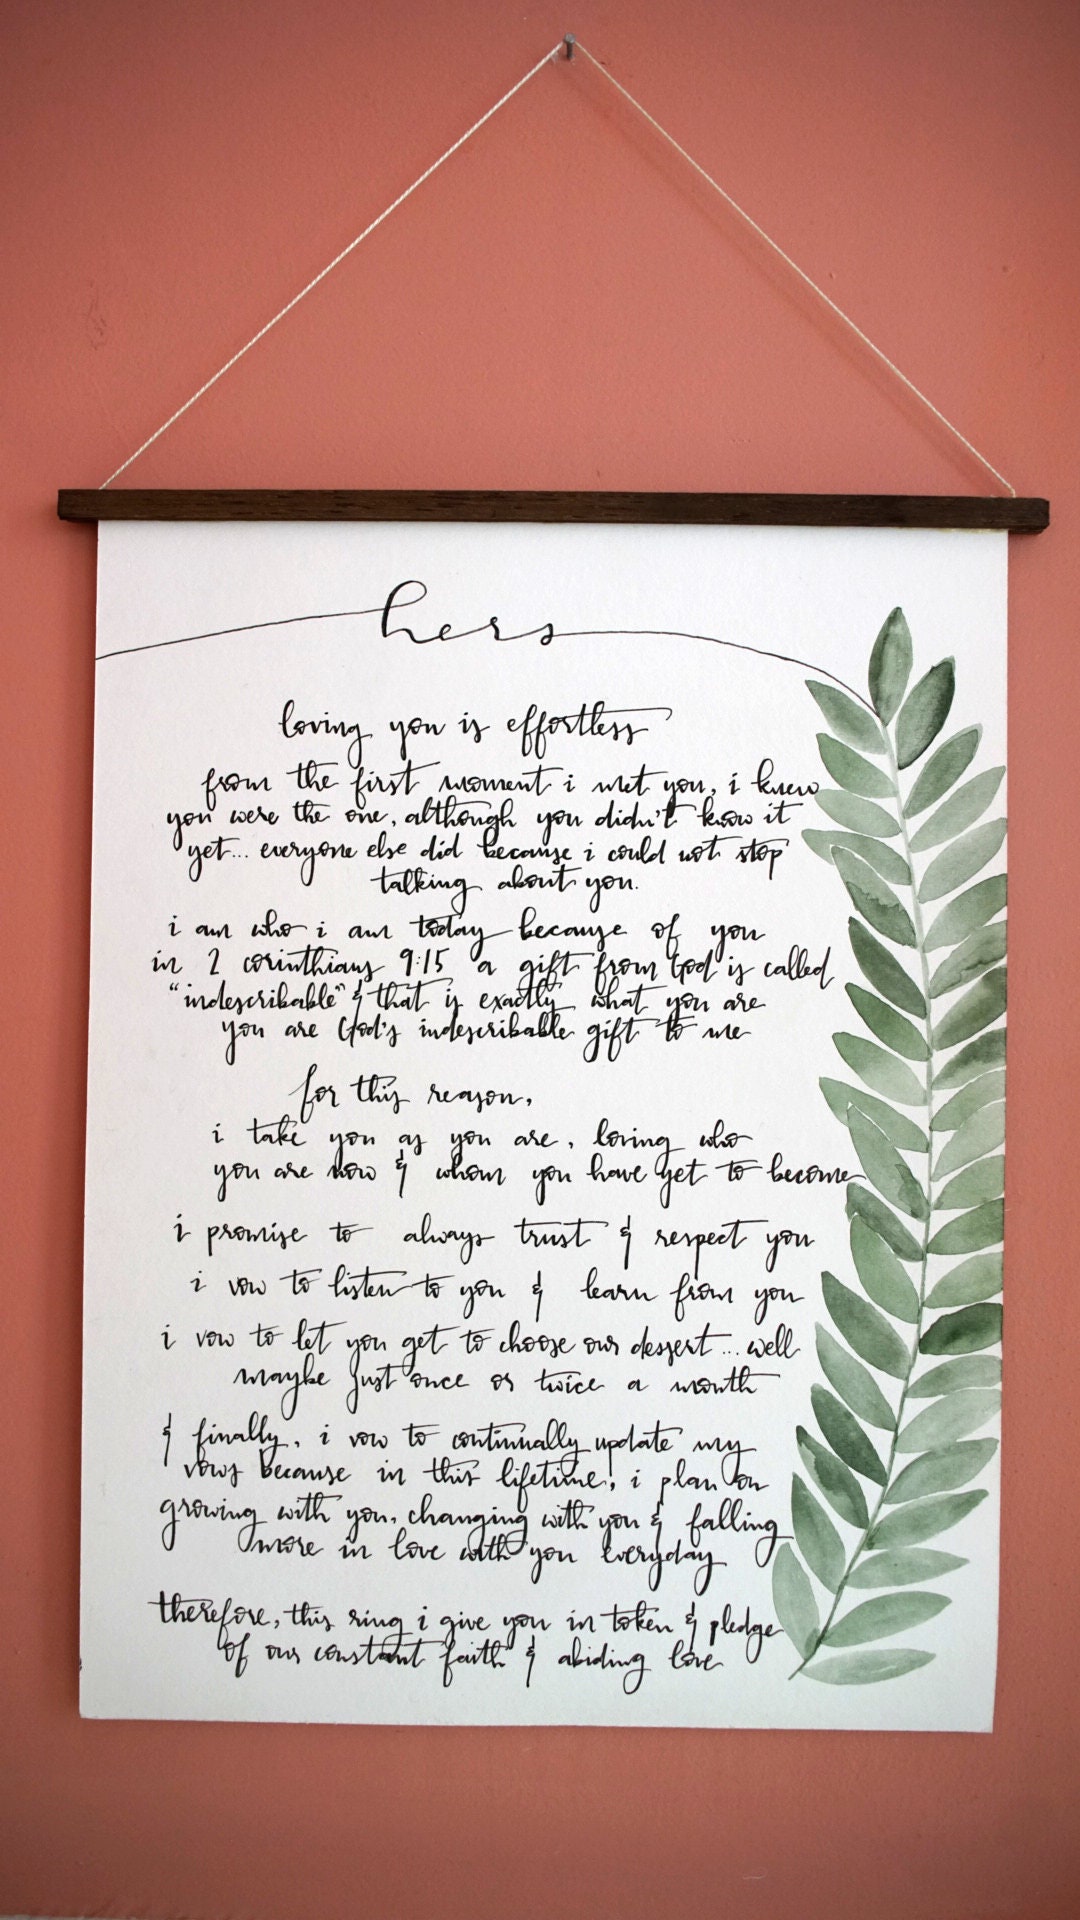 hers
loving you is effortless
from the first moment i met you, i knew
you were the one, although you didn't know it
yet... everyone else did because i could not stop
talking about you.
i am who i am today because of you
in 2 corinthians 9:15 a gift from God is called
"indescribable" & that is exactly what you are
you are God's indescribable gift to me
for this reason,
i take you as you are, loving who
you are now & whom you have yet to become
i promise to always trust & respect you
i vow to listen to you & learn from you
i vow to let you get to choose our dessert... well
maybe just once or twice a month
& finally, i vow to continually update my
vows because in this lifetime, i plan on
growing with you, changing with you & falling
more in love with you everyday
therefore, this ring i give you in token & pledge
of our constant faith & abiding love